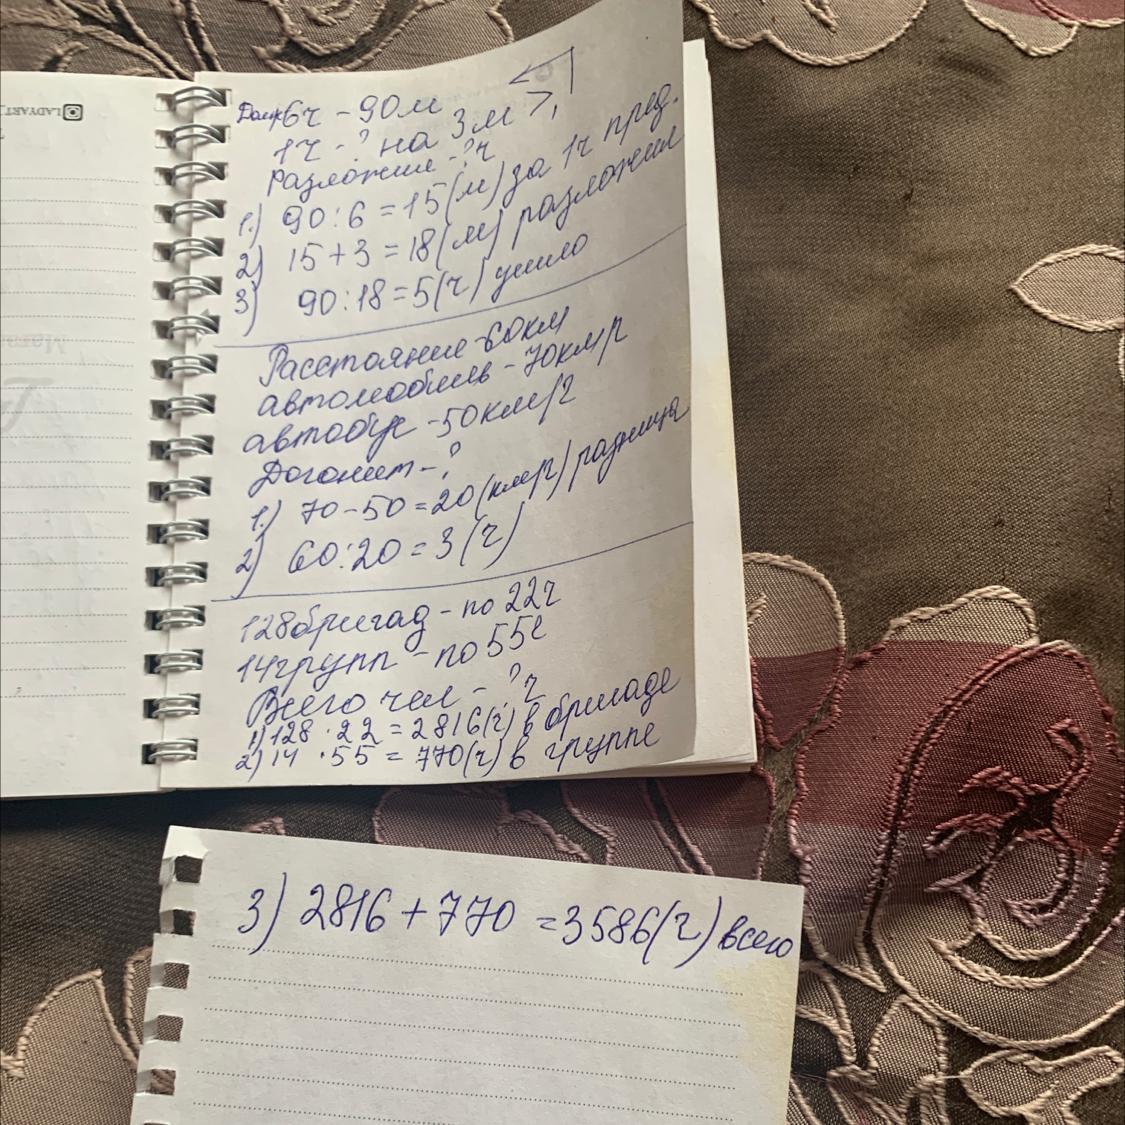 LADYART
Долж 6ч - 90м
1ч - ? на 3м >,
разложил - ?ч
1.) 90:6=15(м) за 1ч пред.
2) 15+3=18(м) разложил
3) 90:18=5(ч) ушло
Расстояние - 60км
автомобиль - 70км/ч
автобус - 50км/ч
Догонит - ?
1.) 70-50=20(км/ч) разница
2) 60:20=3(ч)
128бригад - по 22ч
14групп - по 55ч
Всего чел - ?ч
1) 128·22=2816(ч) в бригаде
2) 14·55=770(ч) в группе
3) 2816+770=3586(ч) всего